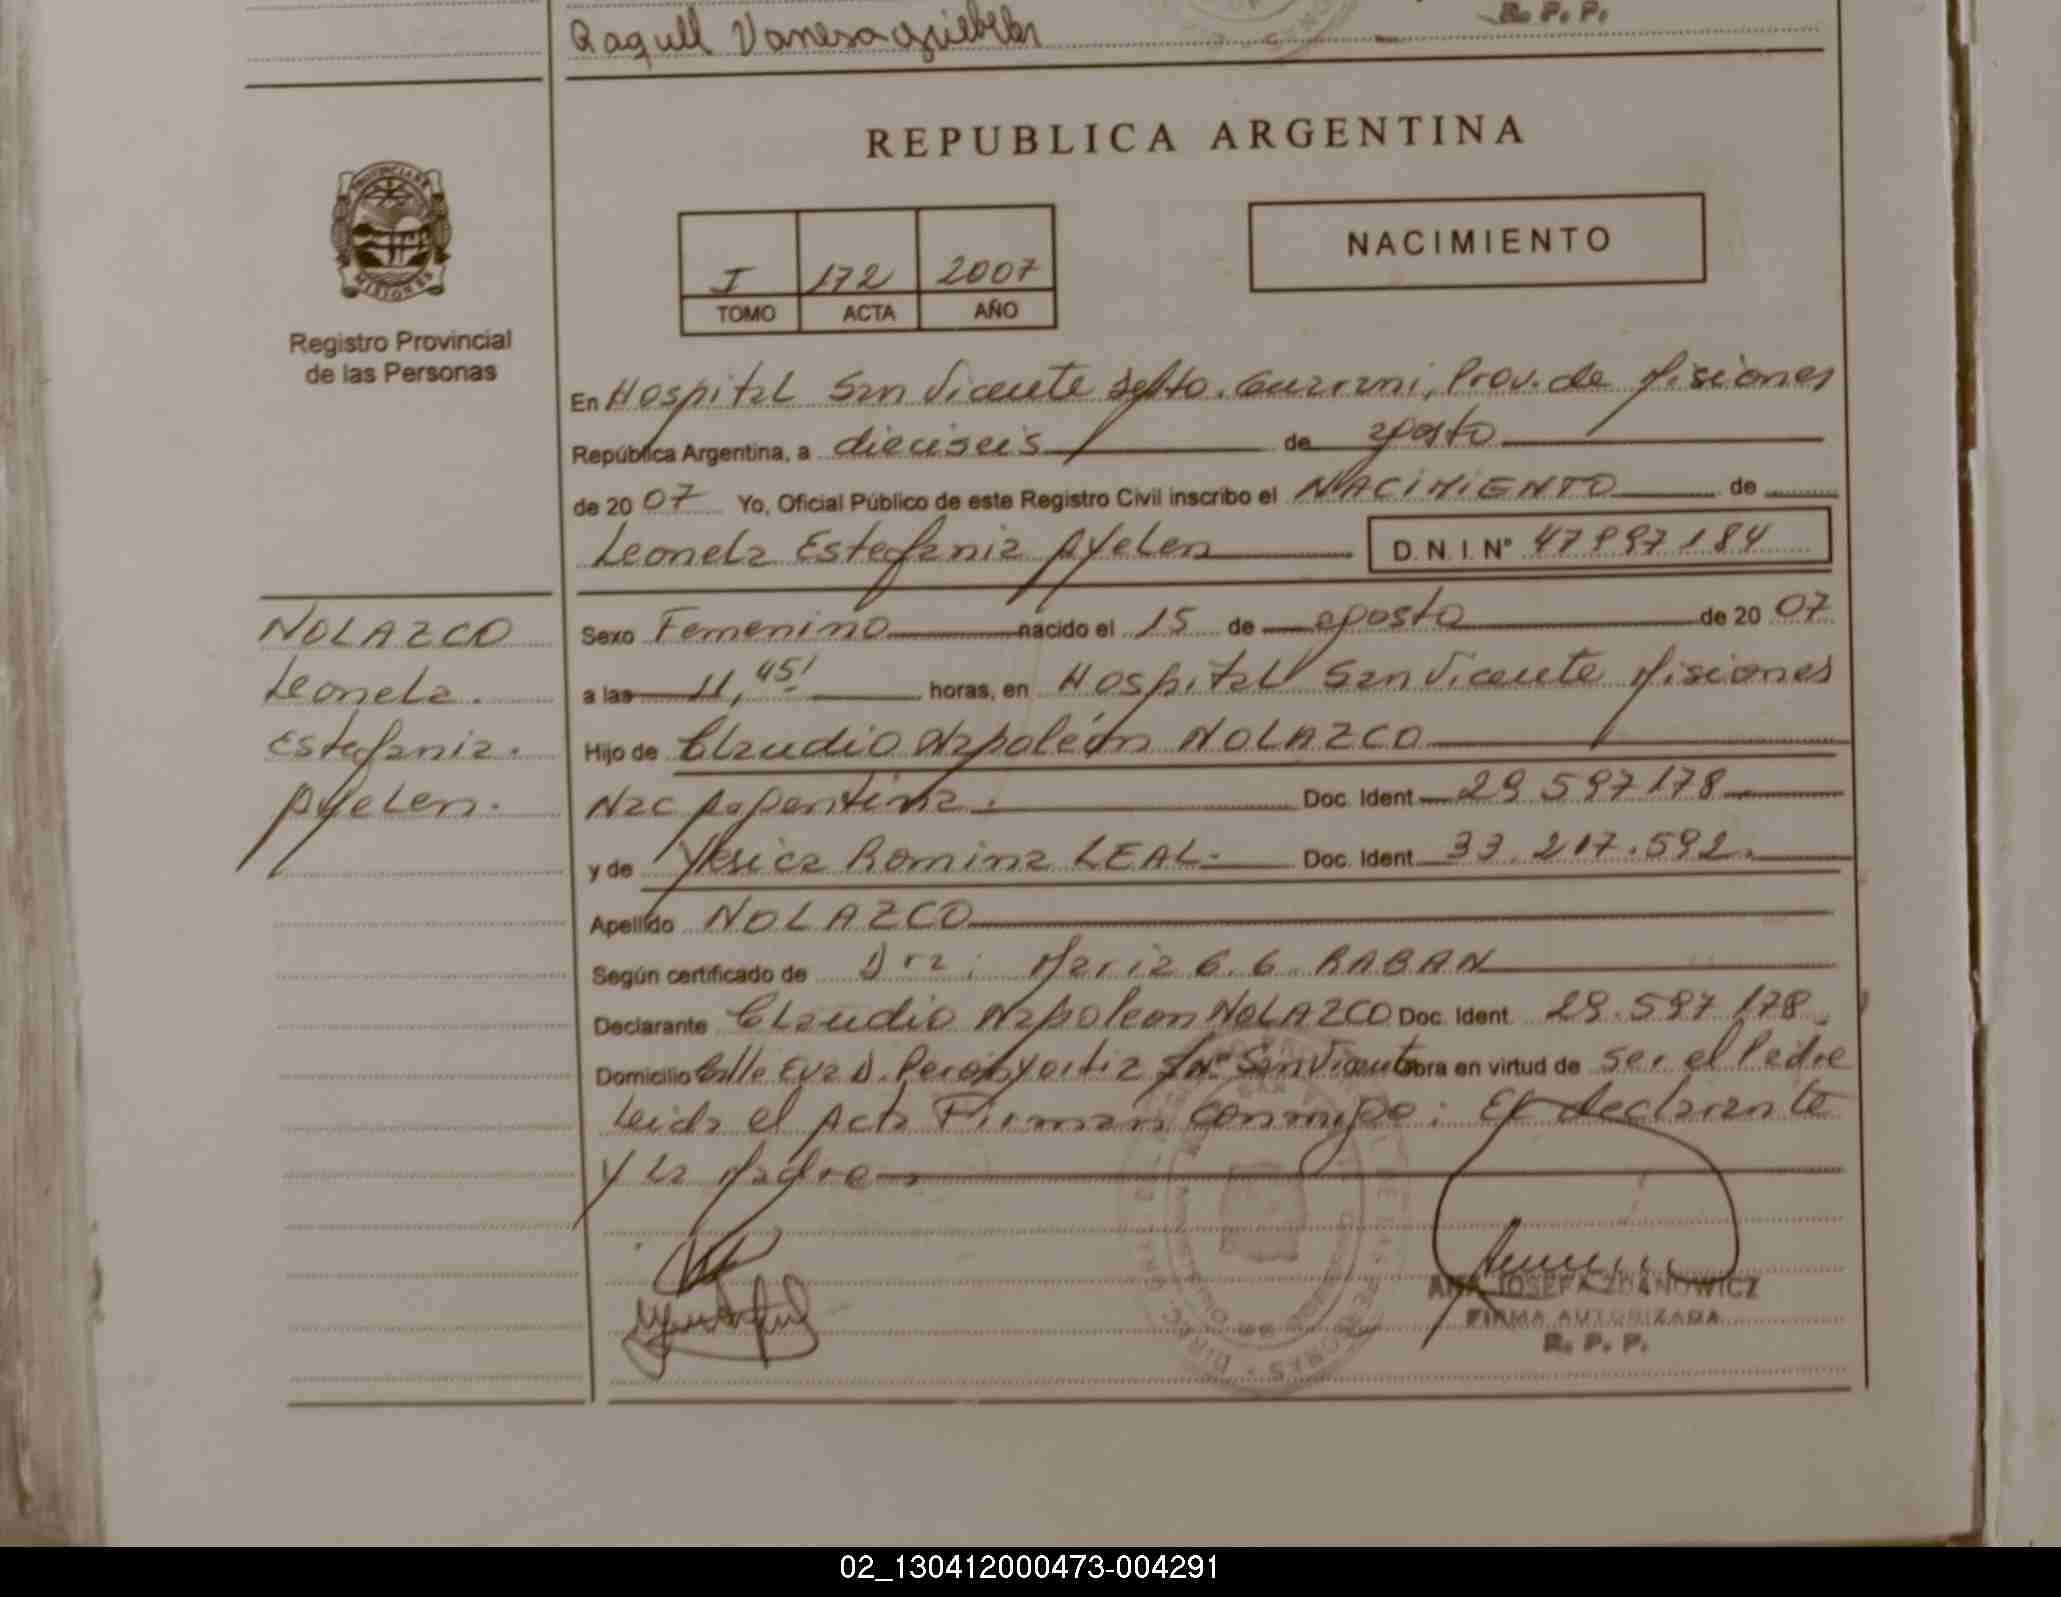 Raquel Vanesa Griebeler
R. P. P.
REPUBLICA ARGENTINA
PROVINCIA DE
MISIONES
Registro Provincial
de las Personas
I 172 2007
TOMO ACTA AÑO
NACIMIENTO
En Hospital San Vicente Dpto. Guarani, Prov. de Misiones
República Argentina, a dieciseis de agosto
de 20 07 Yo, Oficial Público de este Registro Civil inscribo el NACIMIENTO de
Leonela Estefania Ayelen D.N.I. Nº 47997184
NOLAZCO
Leonela.
Estefania.
Ayelen.
Sexo Femenino nacido el 15 de agosto de 20 07
a las 11,45' horas, en Hospital San Vicente Misiones
Hijo de Claudio Napoleón NOLAZCO
Nac Argentina. Doc. Ident 29 597178
y de Yesica Romina LEAL- Doc. Ident 33.217.592.
Apellido NOLAZCO
Según certificado de Dra: Maria G. G. RABAN
Declarante Claudio Napoleon NOLAZCO Doc. Ident. 29.597 178
Domicilio Calle Eva D. Peron y S/Nº San Vicente obra en virtud de ser el Padre
Leida el Acta Firman conmigo: El declarante
y La Madre
ANA JOSEFA ZDANOWICZ
FIRMA AUTORIZADA
R. P. P.
02_130412000473-004291